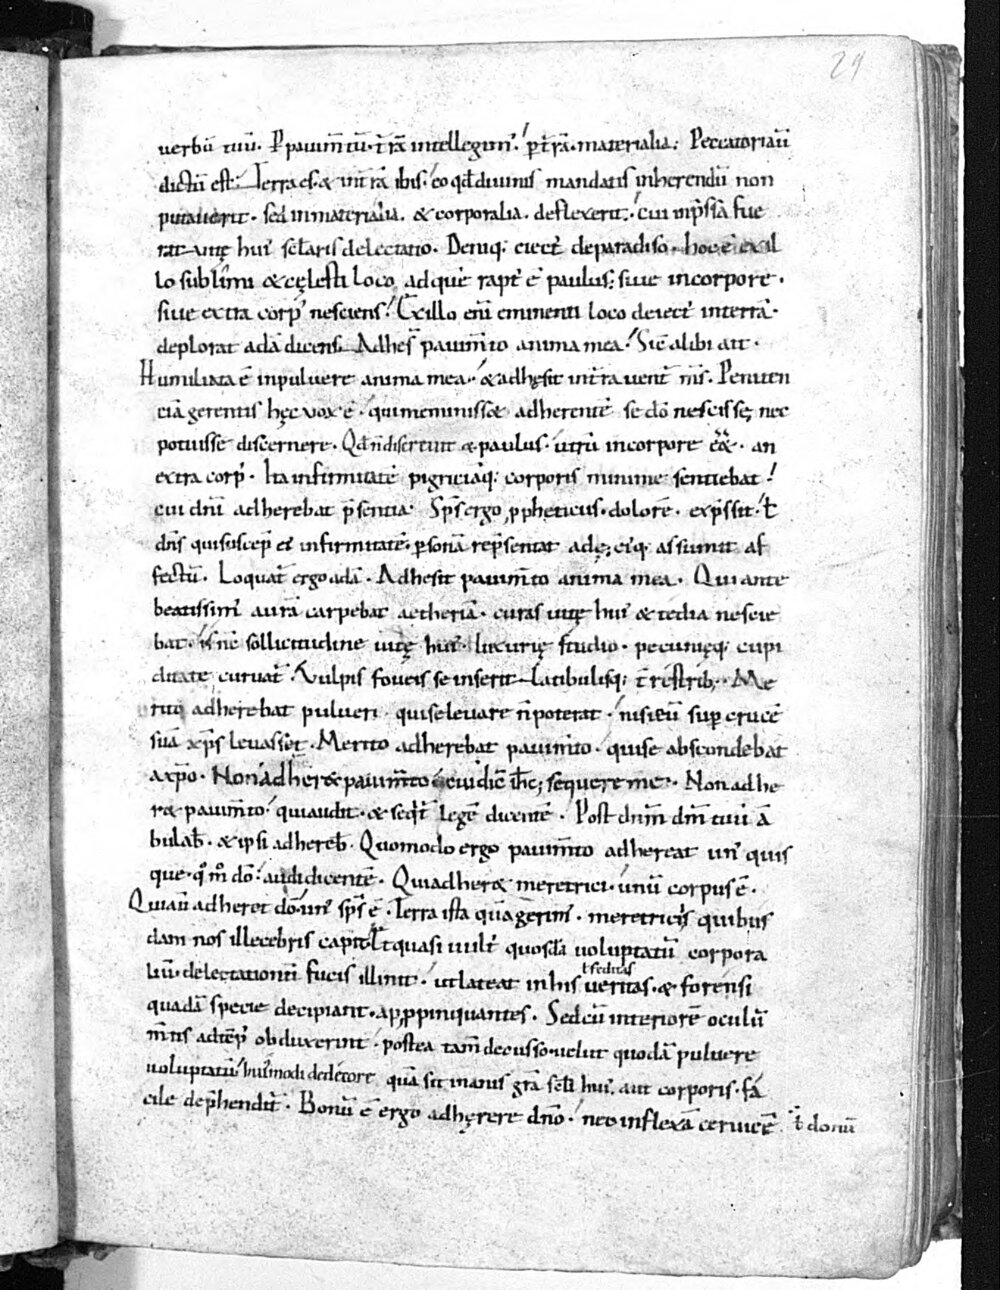 29
verbū tuū. P pauim̄tū. t̄rā intellegim'. p t̄rā. materialia. Peccatori aū
dictū est. Terra es. & in t̄rā ibis. eo qd̄ diuinis mandatis inherendū non
putauerit. sed inmaterialia. & corporalia. deflexerit. cui inp̄ssa fue
rat uitę hui' sc̄laris delectatio. Deniq; eiect' de paradiso. hoc ē ex il
lo sublimi & cęlesti loco ad quē rapt' ē paulus. siue in corpore.
siue extra corp' nesciens. Ex illo eni eminenti loco deiect' in terrā.
deplorat adā dicens. Adhes̄ pauim̄to anima mea. Sic alibi ait.
Humiliata ē in puluere anima mea. & adhęsit in t̄ra uent' m̄s. Peniten
ciā gerentis hęc uox ē. qui meminisset adherentē se dō nescisse, nec
potuisse discernere. Qd n̄ discernit & paulus. utrū in corpore an
extra corp'. Ita infirmitatē pigriciāq; corporis minime sentiebat.
cui dn̄i adherebat p̄sentia. Sp̄s ergo ppheticus. dolorē. exp̄ssit. ł
dn̄s qui suscep' ei infirmitatē. psonā rep̄sentat adę, ei'q; assumit af
fectū. Loquat' ergo adā. Adhesit pauim̄to anima mea. Qui ante
beatissim' aurā carpebat aetheriā. curas uitę hui' & tedia nescie
bat. is nc̄ sollicitudine uitę hui'. luxurię studio. pecunięq; cupi
ditate curuat'. Vulpis foueis se inserit latibulisq; t̄restrib;. Me
rito adherebat pulueri. qui se leuare n̄ poterat. nisi eū sup crucē
suā xp̄s leuasset. Merito adherebat pauim̄to. qui se abscondebat
a xp̄o. Non adheret pauim̄to cui dic̄ ih̄c; sequere me. Non adhe
ret pauim̄to. qui audit. & seqt' legē dicentē. Post dn̄m dm̄ tuū ā
bulab. & ipsi adhereb. Quomodo ergo pauim̄to adhereat un' quis
que. qom̄ dō. audi dicentē. Qui adheret meretrici. unū corpus ē.
Qui aū adheret dō. un' sp̄s ē. Terra ista quā gerim'. meretriciis quibus
dam nos illecebris capit. Et quasi uult' quosdā uoluptatū corpora
liū. delectationū fucis illinit. ut lateat in his ueritas. & forensi
ł feditas
quadā specie decipiant. appinquantes. Sed cū interiorē oculū
m̄tis ad tēp' obduxerint. postea tam̄ decusso uelut quodā puluere
uoluptatū hui'modi dedecore quā sit inanis gr̄a sc̄li hui'. aut corporis. fa
cile dep̄hendit. Bonū ē ergo adhęrere dn̄o. nec inflexā ceruicē ł donū